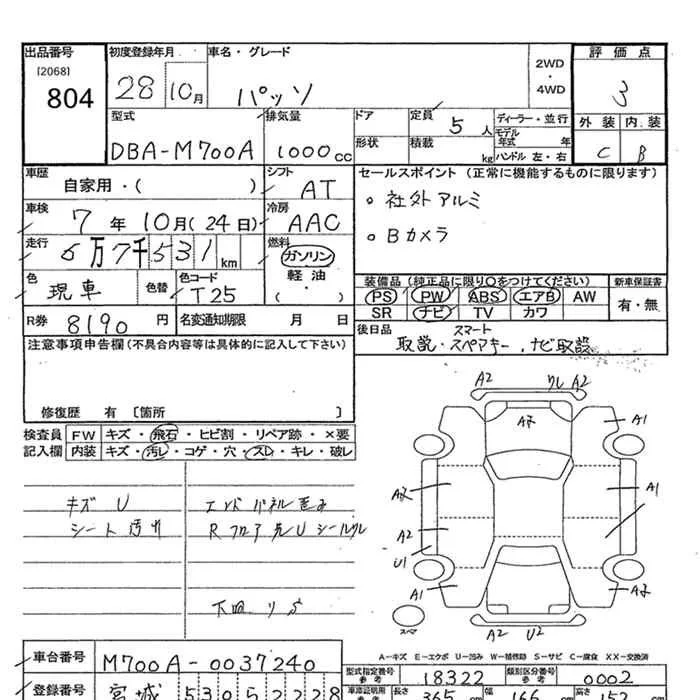 出品番号 初度登録年月 車名・グレード 2WD・4WD 評価点
[2068]
804 28 10月 パッソ 3
型式 排気量 ドア 定員 5人 ディーラー・並行 外装 内装
DBA-M700A 1000cc 形状 積載 kg モデル年式 年 ハンドル 左・右 C B
車歴 自家用・( ) シフト AT セールスポイント (正常に機能するものに限ります)
。社外アルミ
車検 7年 10月(24日) 冷房 AAC
。Bカメラ
走行 6万7千531km 燃料 ガソリン 軽油・( )
色 現車 色替 色コード T25 装備品 (純正品に限り〇をつけてください) 新車保証書
PS PW ABS エアB AW 有・無
SR ナビ TV カワ
R券 8190円 名変通知期限 月 日 後日品 スマート
取説・スペアキー、ナビ取説
注意事項申告欄 (不具合内容等は具体的に記入して下さい)
修復歴 有 〔箇所 〕
検査員記入欄 FW キズ・飛石・ヒビ割・リペア跡・×要
内装 キズ・汚レ・コゲ・穴・スレ・キレ・破レ
キズ U
シート汚れ
エンドパネル歪み
R フロア 先U シールワレ
下回り S
A2 ワレ A2
A1
A1
A2
U1
A1
スペア
A2 U2
A-キズ E-エクボ U-凹み W-補修跡 S-サビ C-腐食 XX-交換済
車台番号 M700A-0037240 型式指定番号 参考 18322 類別区分番号 参考 0002
登録番号 宮城 530 長さ 365 cm 幅 166 cm 高さ 152